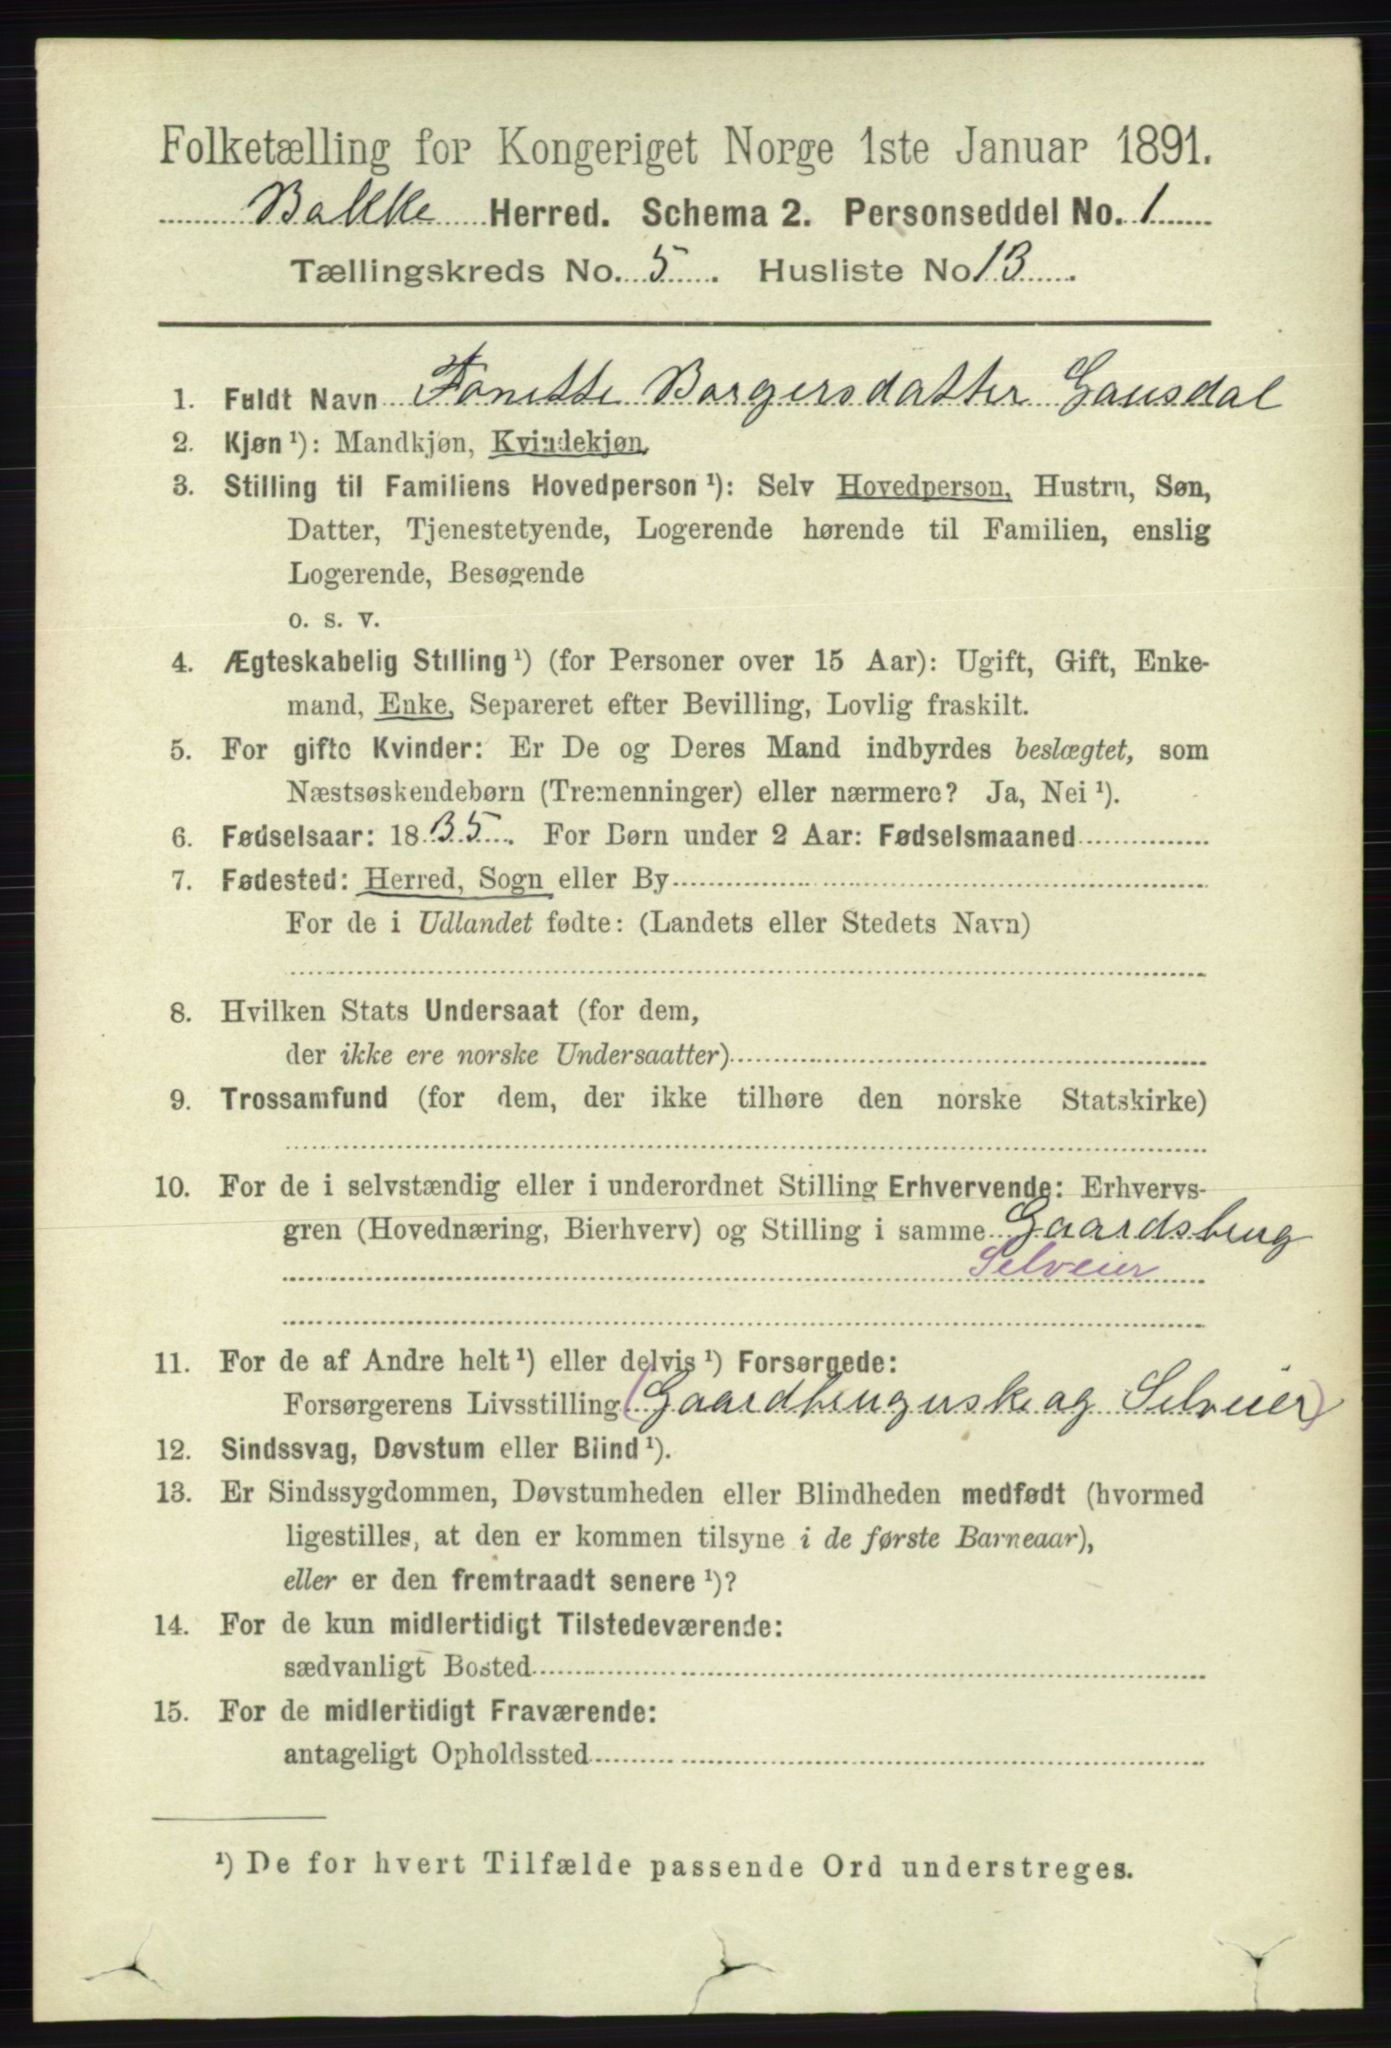 Folketælling for Kongeriget Norge 1ste Januar 1891.
Bakke Herred. Schema 2. Personseddel No. 1
Tællingskreds No. 5. Husliste No 13.
1. Fuldt Navn Tonette Borgersdatter Gausdal
2. Kjøn ¹): Mandkjøn, Kvindekjøn.
3. Stilling til Familiens Hovedperson ¹): Selv Hovedperson, Hustru, Søn,
Datter, Tjenestetyende, Logerende hørende til Familien, enslig
Logerende, Besøgende
o. s. v.
4. Ægteskabelig Stilling ¹) (for Personer over 15 Aar): Ugift, Gift, Enke-
mand, Enke, Separeret efter Bevilling, Lovlig fraskilt.
5. For gifte Kvinder: Er De og Deres Mand indbyrdes beslægtet, som
Næstsøskendebørn (Tremenninger) eller nærmere? Ja, Nei ¹).
6. Fødselsaar: 1835. For Børn under 2 Aar: Fødselsmaaned
7. Fødested: Herred, Sogn eller By
For de i Udlandet fødte: (Landets eller Stedets Navn)
8. Hvilken Stats Undersaat (for dem,
der ikke ere norske Undersaatter)
9. Trossamfund (for dem, der ikke tilhøre den norske Statskirke)
10. For de i selvstændig eller i underordnet Stilling Erhvervende: Erhvervs-
gren (Hovednæring, Bierhverv) og Stilling i samme Gaardsbrug
Selveier
11. For de af Andre helt ¹) eller delvis ¹) Forsørgede:
Forsørgerens Livsstilling (Gaardbrugerske og Selveier)
12. Sindssvag, Døvstum eller Blind ¹).
13. Er Sindssygdommen, Døvstumheden eller Blindheden medfødt (hvormed
ligestilles, at den er kommen tilsyne i de første Barneaar),
eller er den fremtraadt senere ¹)?
14. For de kun midlertidigt Tilstedeværende:
sædvanligt Bosted
15. For de midlertidigt Fraværende:
antageligt Opholdssted
¹) De for hvert Tilfælde passende Ord understreges.